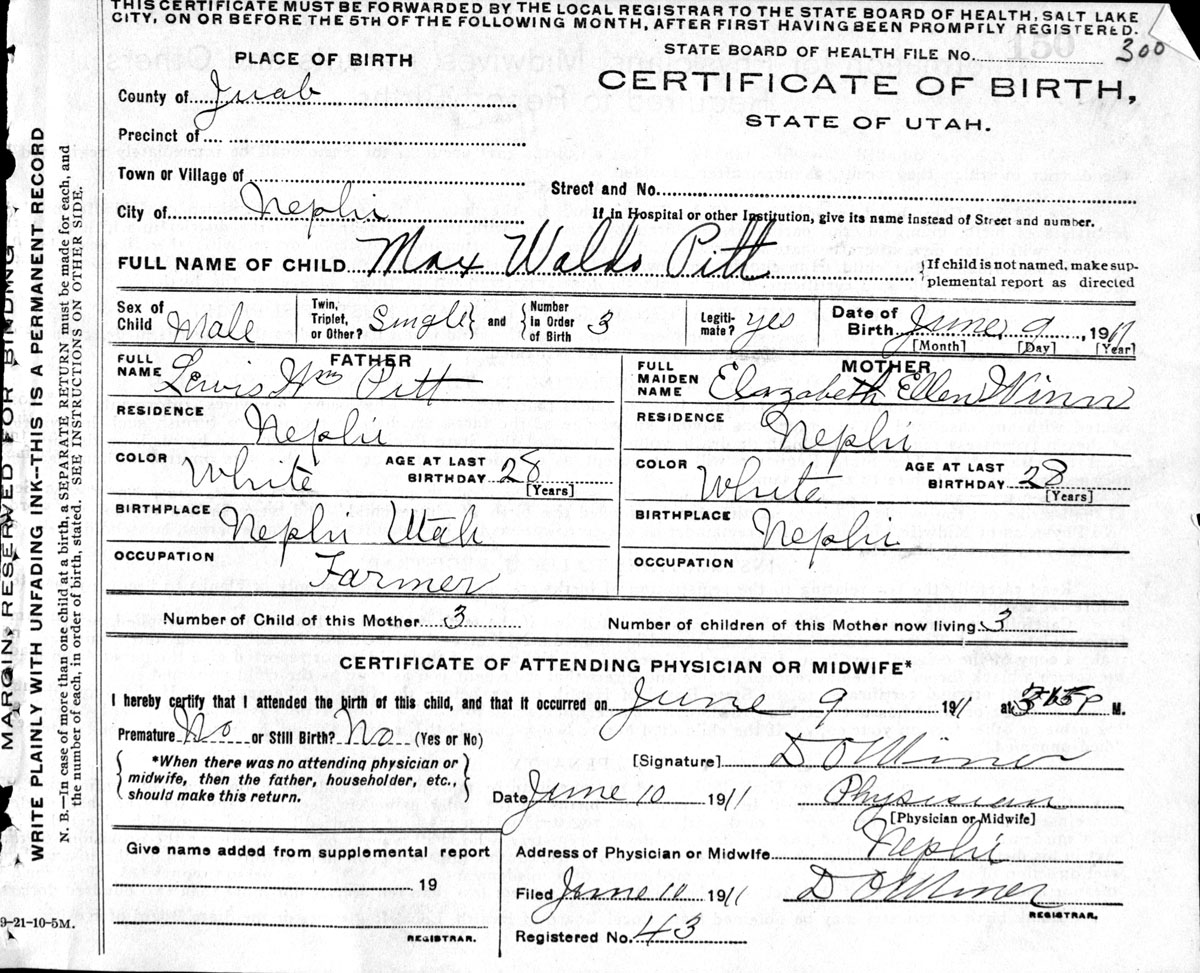 THIS CERTIFICATE MUST BE FORWARDED BY THE LOCAL REGISTRAR TO THE STATE BOARD OF HEALTH, SALT LAKE
CITY, ON OR BEFORE THE 5TH OF THE FOLLOWING MONTH, AFTER FIRST HAVING BEEN PROMPTLY REGISTERED.
STATE BOARD OF HEALTH FILE No. 150 300
PLACE OF BIRTH
CERTIFICATE OF BIRTH,
STATE OF UTAH.
County of Juab
Precinct of
Town or Village of
Street and No.
City of Nephi
If in Hospital or other Institution, give its name instead of Street and number.
FULL NAME OF CHILD Max Waldo Pitt
{If child is not named, make sup-
plemental report as directed
Sex of Child Male
Twin, Triplet, or Other? Single } and { Number in Order of Birth 3
Legiti-mate? yes
Date of Birth June, 9, 1911
[Month] [Day] [Year]
FATHER
FULL NAME Lewis Wm Pitt
RESIDENCE Nephi
COLOR White AGE AT LAST BIRTHDAY 28 [Years]
BIRTHPLACE Nephi Utah
OCCUPATION Farmer
MOTHER
FULL MAIDEN NAME Elizabeth Ellen Winn
RESIDENCE Nephi
COLOR White AGE AT LAST BIRTHDAY 28 [Years]
BIRTHPLACE Nephi
OCCUPATION
Number of Child of this Mother 3 Number of children of this Mother now living 3
CERTIFICATE OF ATTENDING PHYSICIAN OR MIDWIFE*
I hereby certify that I attended the birth of this child, and that it occurred on June 9 1911 at P M.
Premature No or Still Birth? No (Yes or No)
*When there was no attending physician or
midwife, then the father, householder, etc.,
should make this return.
[Signature] D O Miner
Date June 10 1911 Physician
[Physician or Midwife]
Address of Physician or Midwife Nephi
Filed June 10 1911 D O Miner
REGISTRAR.
Registered No. 43
Give name added from supplemental report
19
REGISTRAR.
9-21-10-5M.
MARGIN RESERVED FOR BINDING
WRITE PLAINLY WITH UNFADING INK--THIS IS A PERMANENT RECORD
N. B.—In case of more than one child at a birth, a SEPARATE RETURN must be made for each, and
the number of each, in order of birth, stated. SEE INSTRUCTIONS ON OTHER SIDE.